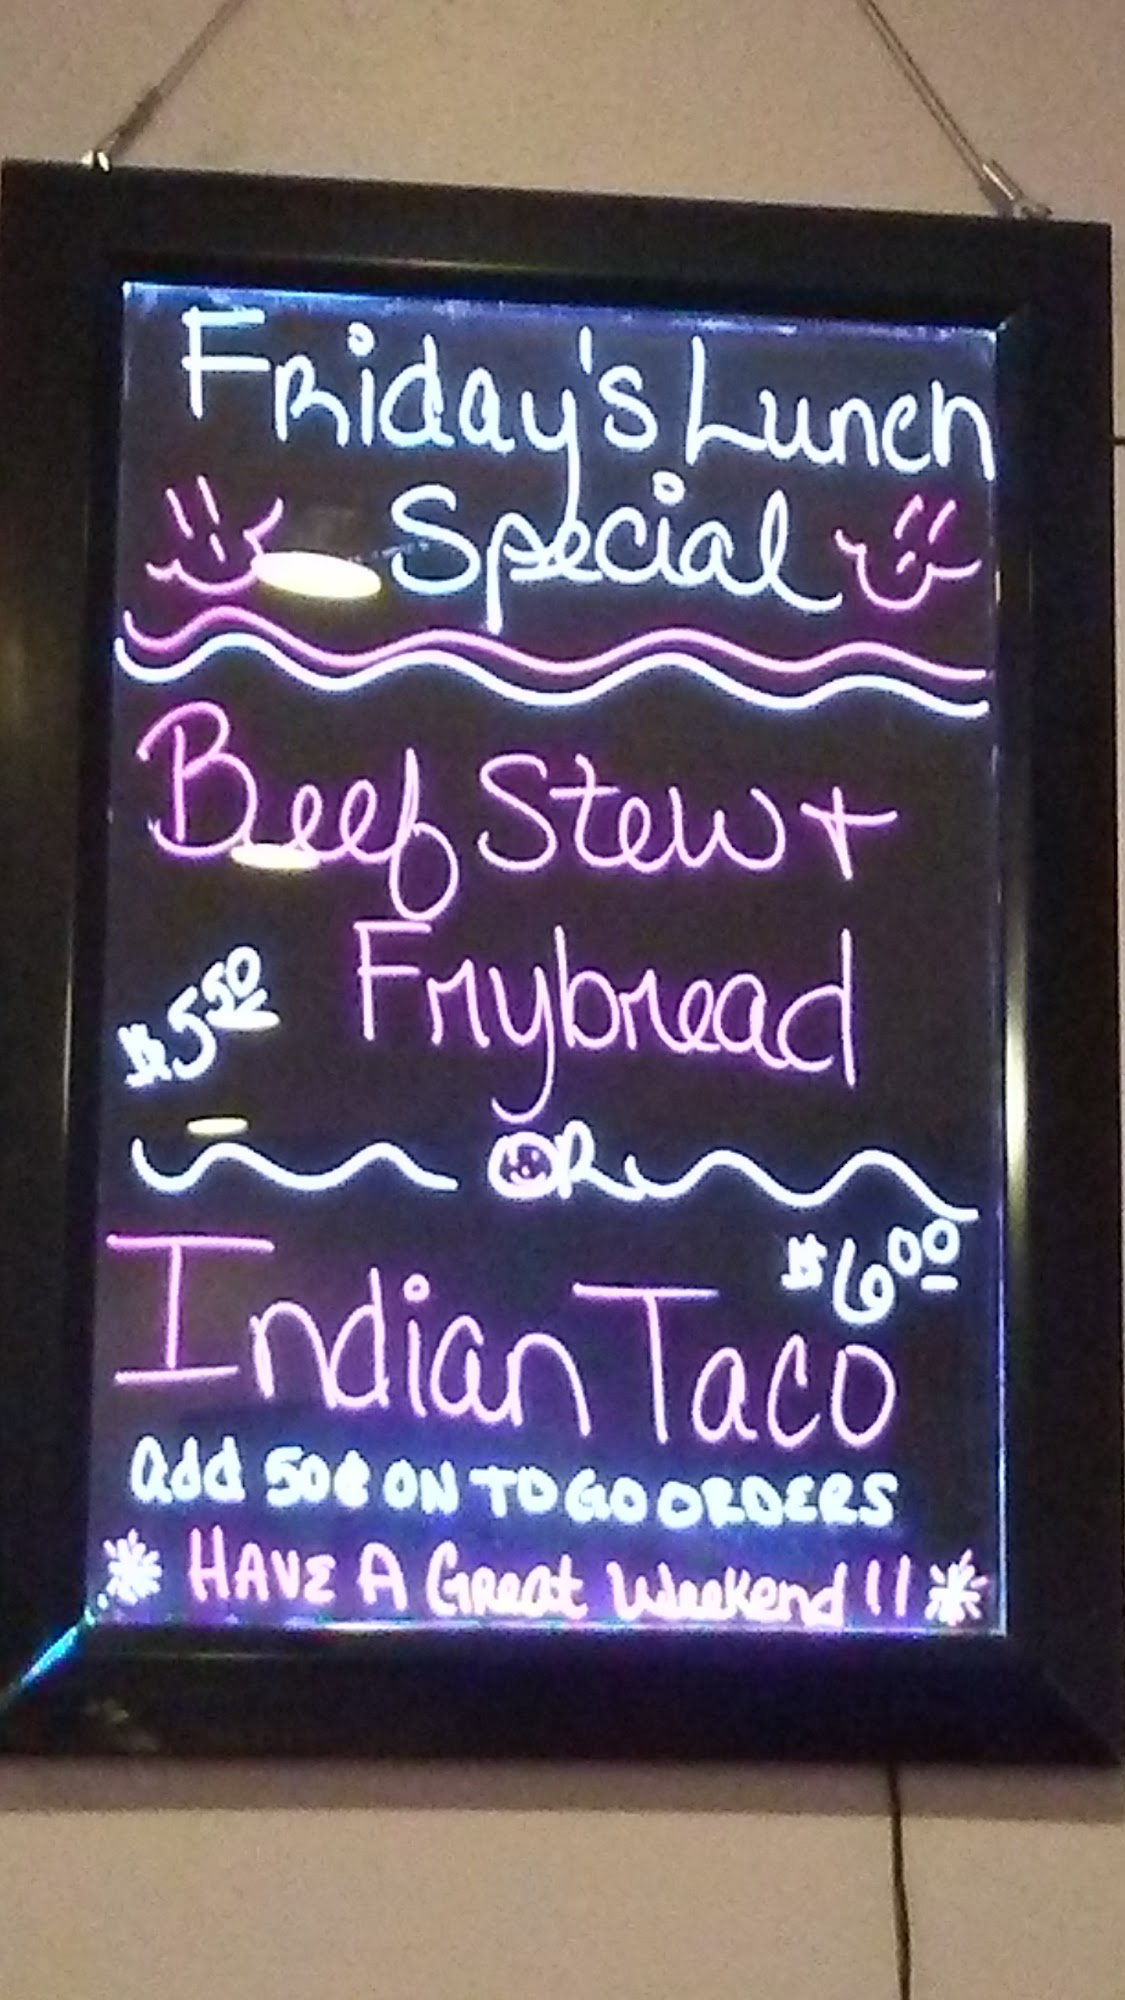 Friday's Lunch
Special
Beef Stew +
Frybread
$5.50
OR
$6.00
Indian Taco
add 50¢ ON TO GO ORDERS
HAVE A Great Weekend!!